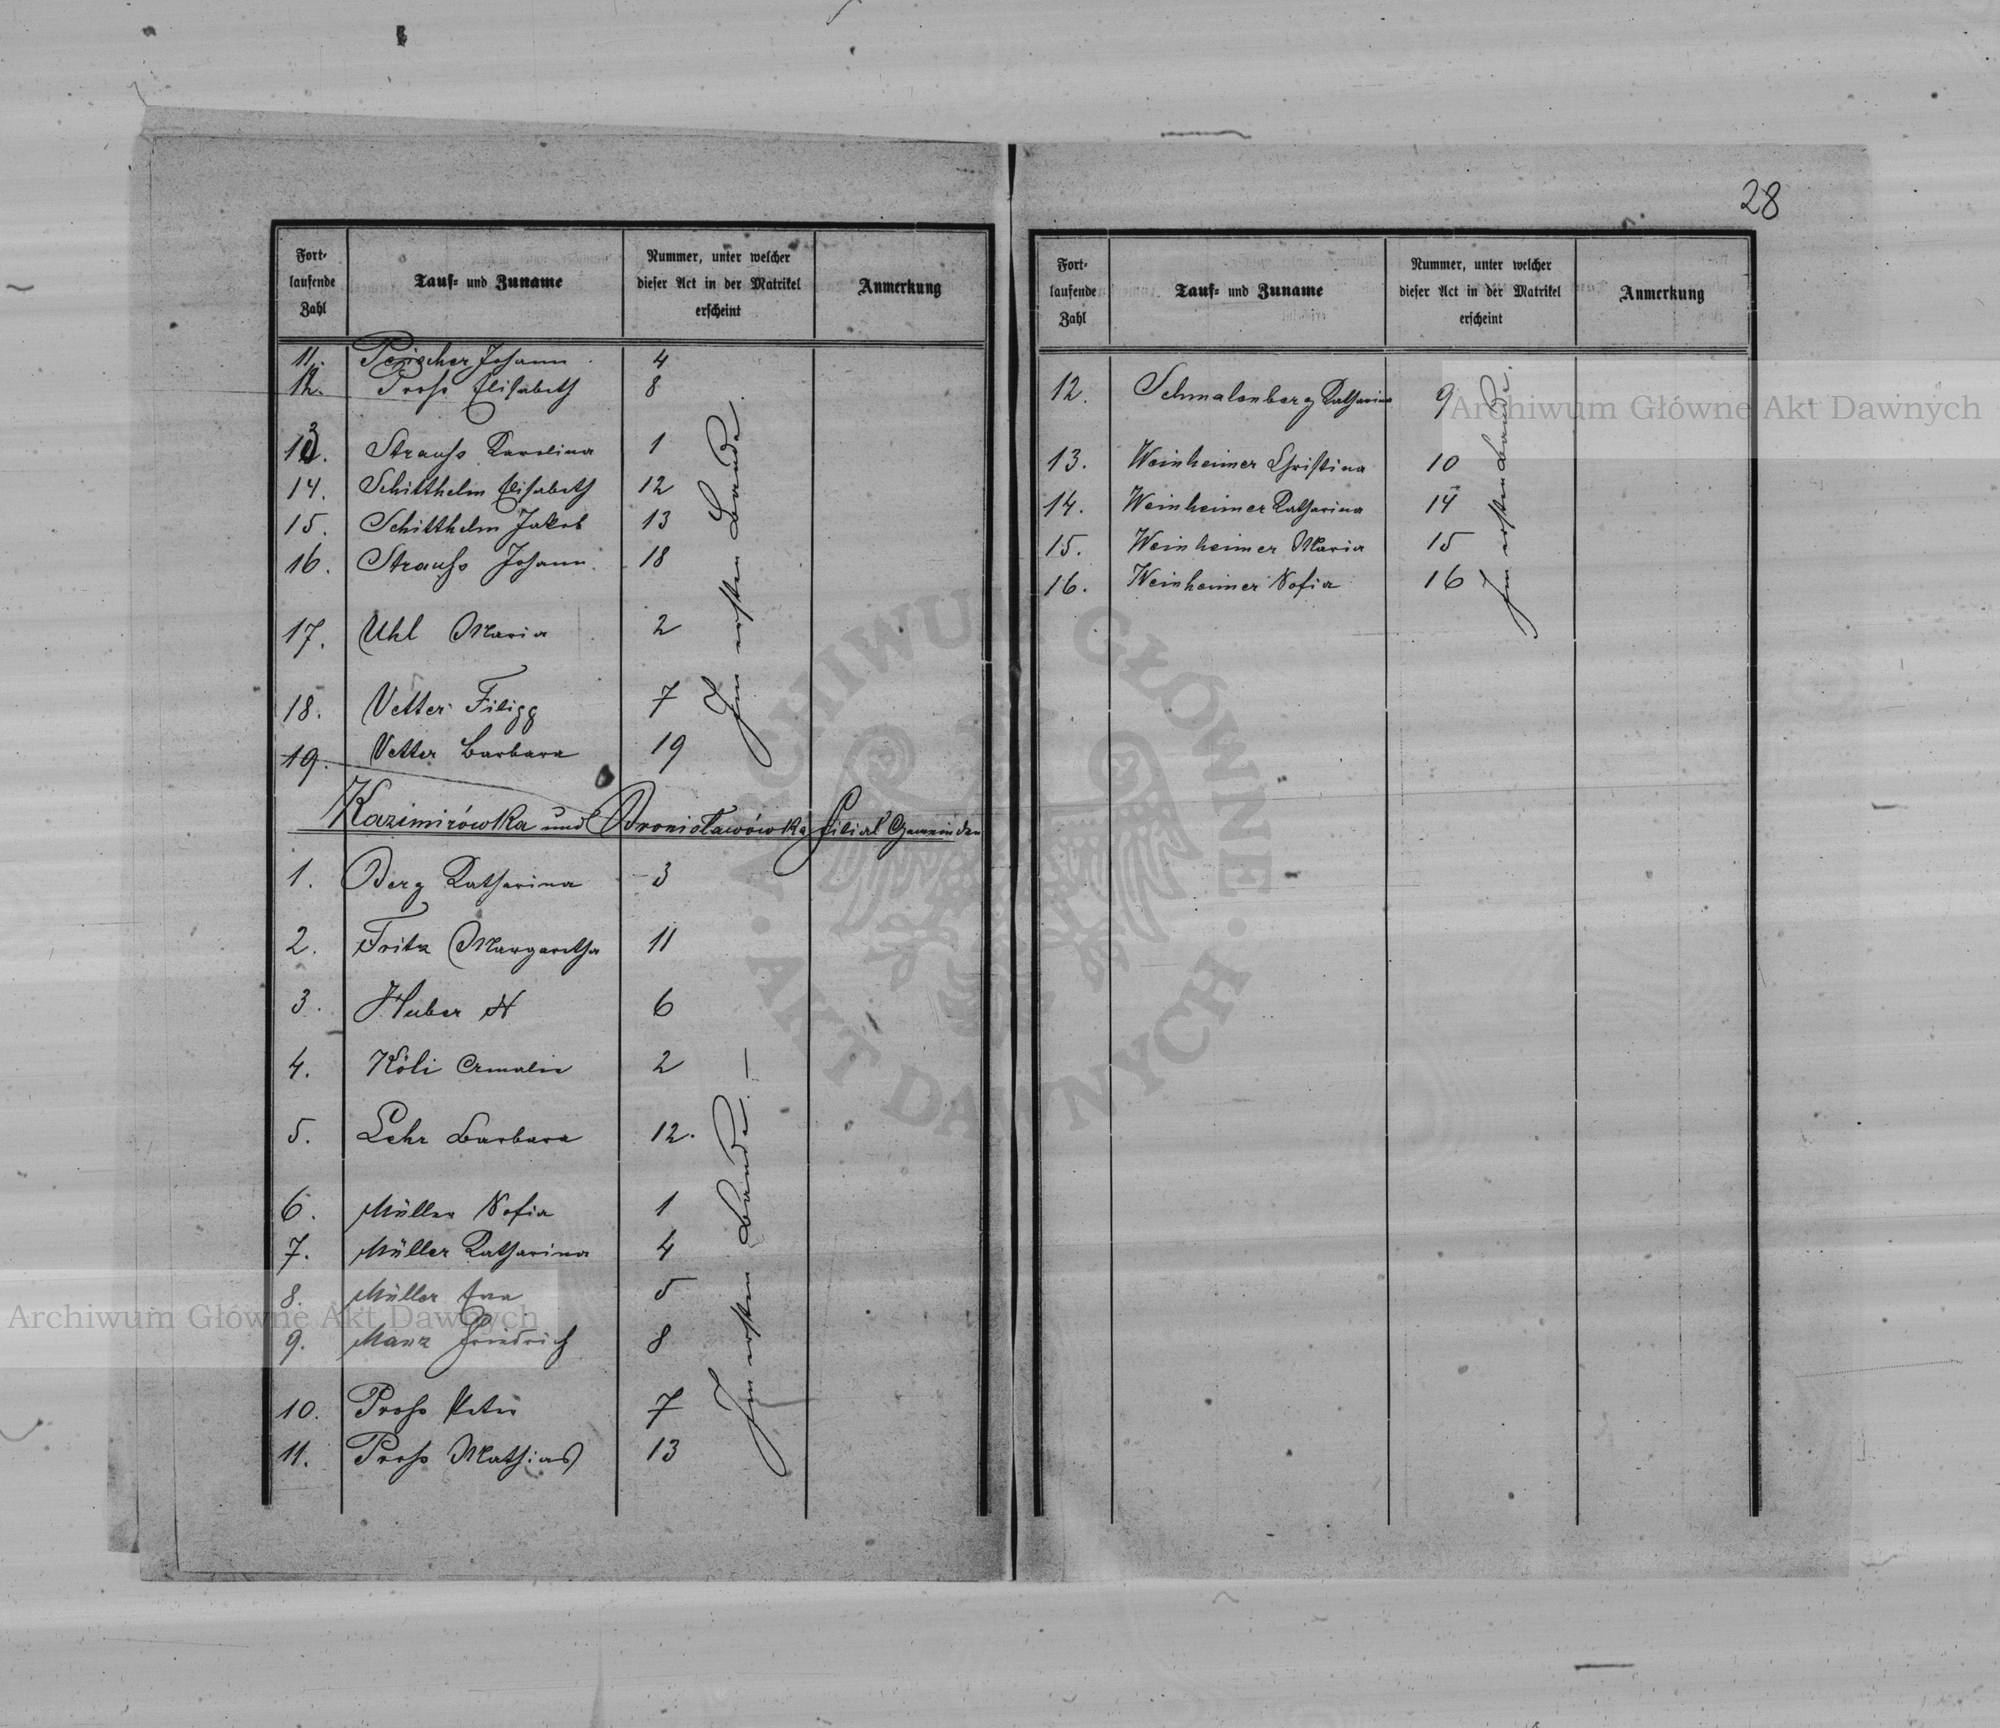 28
Fort-
laufende
Zahl
Tauf- und Zuname
Nummer, unter welcher
dieser Act in der Matrikel
erscheint
Anmerkung
11. Johann 4
12. Pross Elisabeth 8
13. Strauss Karolina 1
14. Schitthelm Elisabeth 12
15. Schitthelm Jakob 13
16. Strauss Johann 18
17. Uhl Maria 2
18. Vetter Filipp 7
19. Vetter Barbara 19
Im ersten Bande.
Kazimirówka und Bronisławówka Filial Gemeinden
1. Berg Katharina 3
2. Fritz Margaretha 11
3. Huber N 6
4. Köli Amalie 2
5. Lehr Barbara 12.
6. Müller Sofia 1
7. Müller Katharina 4
8. Müller Eva 5
9. Manz Friedrich 8
10. Pross Peter 7
11. Pross Mathias 13
Im ersten Bande. —
Fort-
laufende
Zahl
Tauf- und Zuname
Nummer, unter welcher
dieser Act in der Matrikel
erscheint
Anmerkung
12. Schmalenberg Katharina 9
13. Weinheimer Christina 10
14. Weinheimer Katharina 14
15. Weinheimer Maria 15
16. Weinheimer Sofia 16
Im ersten Bande.
Archiwum Główne Akt Dawnych
Archiwum Główne Akt Dawnych
ARCHIWUM GŁÓWNE
· AKT DAWNYCH ·